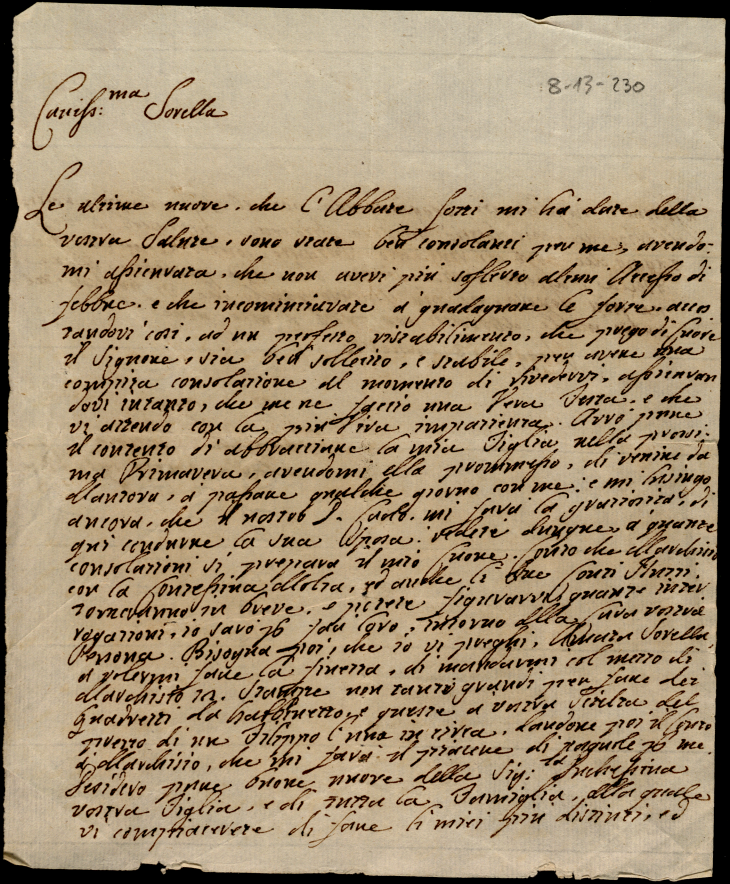 8-13-230
Cariss:ma Sorella
Le ultime nuove, che l'Abbate Sotti mi ha date della
vostra Salute, sono state ben consolanti per me, avendo-
mi assicurata, che non avevi più sofferto alcun Accesso di
febbre, e che incominciavate a guadagnare le forze, accos
tandovi così, ad un perfetto ristabilimento, che prego di cuore
il Signore, sia ben sollecito, e stabile, per avere una
compita consolazione al momento di rivedervi, assicuran
dovi intanto, che me ne faccio una Vera Festa, e che
vi attendo con la più viva impazienza. Avrò pure
il contento di abbracciare la mia Figlia nella prossi-
ma Primavera, avendomi ella promesso, di venire da
Mantova, a passare qualche giorno con me; e mi lusingo
ancora, che il nostro D. Carlo, mi farà la graziosità, di
qui condurre la sua Sposa. Vedete dunque, a quante
consolazioni si prepara il mio Cuore. Conto che Marchisio
con la Contessina, ed anche li due Conti
torneranno in breve, e potete figurarvi quante inter
rogazioni, io sarò p far loro, intorno alla Cara vostra
Persona. Bisogna poi, che io vi preghi, Amata Sorella,
a volermi fare la finezza, di mandarmi col mezzo di
Marchisio 12. Stampe non tanto grandi per fare dei
Quadretti da Gabbinetto, e queste a vostra Scielta del
prezzo di un Filippo l'una in circa, dandone poi il conto
a Marchisio, che mi farà il piacere di pagarle p me.
Desidero pure buone nuove della Sig:ra Duchessina
vostra Figlia, e di tutta la Famiglia, alla quale
vi compiacerete di fare li miei più distinti, ed